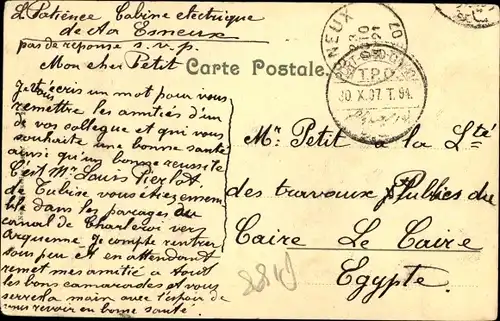 L. Patience Cabine électrique
de Aa Esneux
pas de réponse s.v.p.
Carte Postale.
NEUX
10
21
07
T.P.O
30 X.07 T.94.
Mon cher Petit
Je t'écris un mot pour vous
remettre les amitiés d'un
de vos collegue et qui vous
souhaite une bonne santé
ainsi qu'un bonne reussite
C'est Mr Louis Pierlot
de Tubise vous étiez ensem
ble dans les parages du
canal de Charleroi vers
Arquenne Je compte rentrer
sous peu et en attendant
remet mes amitié a tous
les bons camarades et vous
serre la main avec l'espoir de
vous revoir en bonne santé.
Mr Petit a la Lté
des travaux Publics du
Caire Le Caire
Egypte.